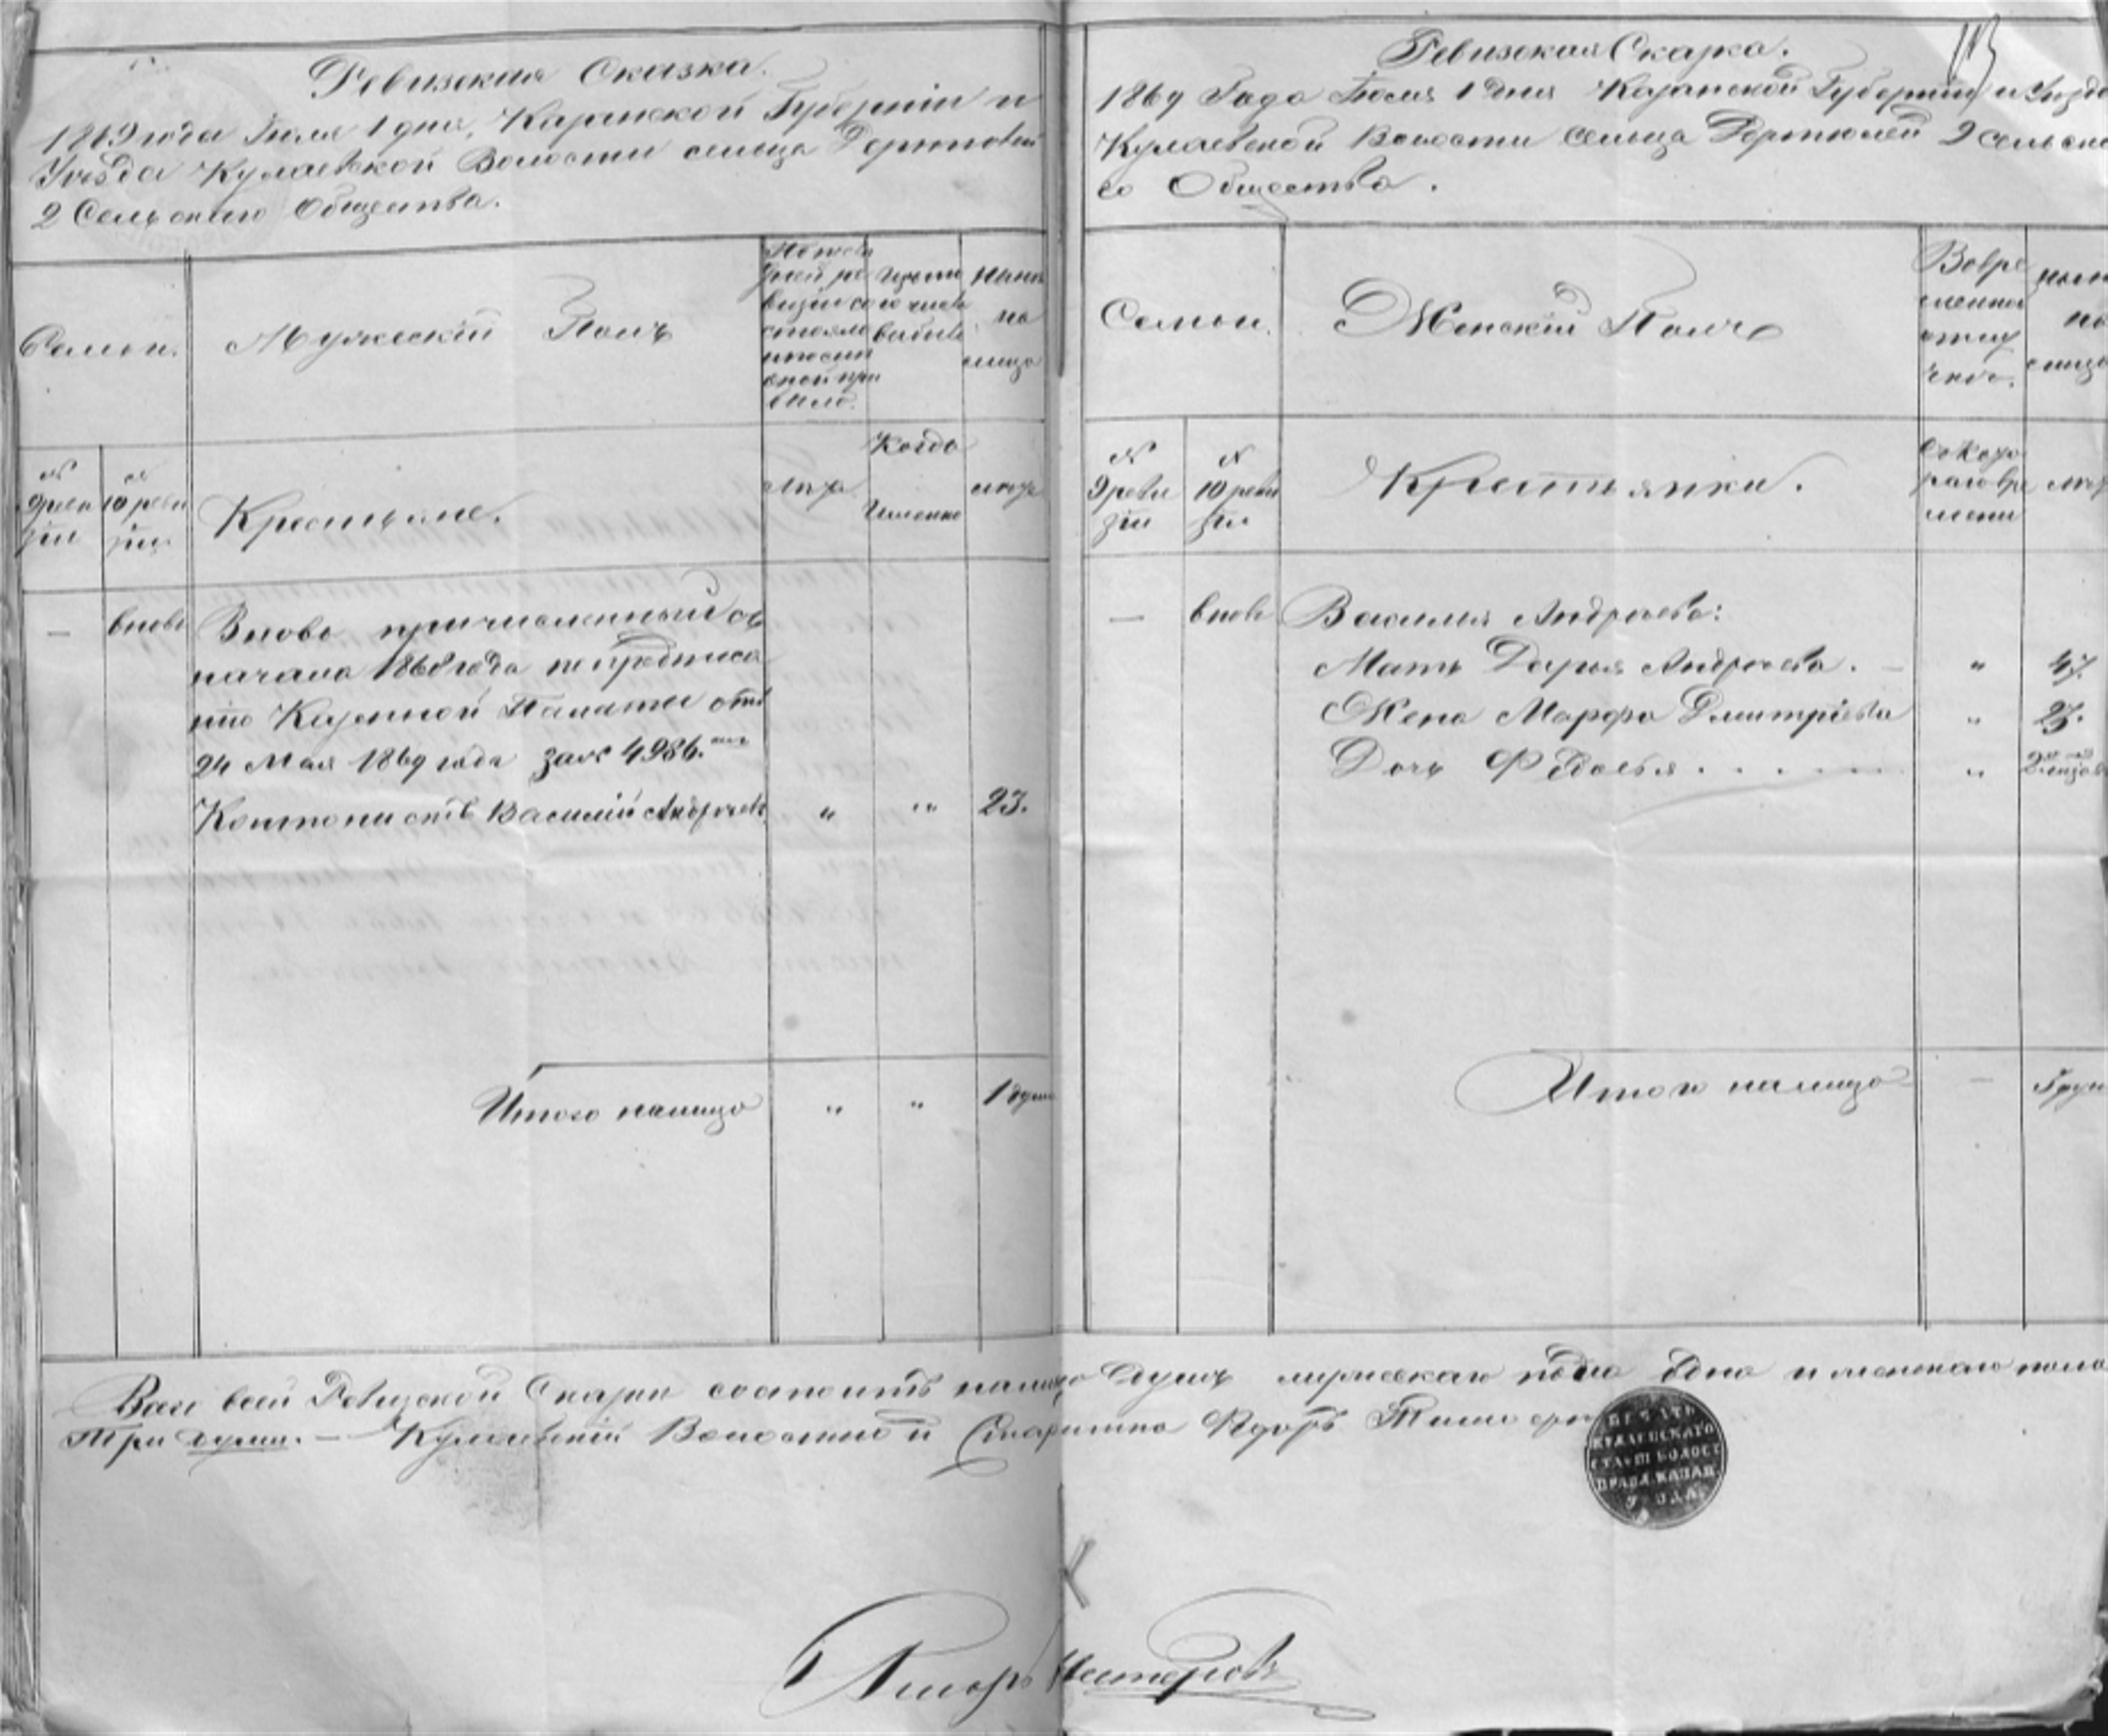 Ревизская Сказка.
1869 года Іюля 1 дня, Казанской Губерніи и
Уѣзда Кулаевской Волости сельца
2 Сельскаго Общества.
Семьи.
Мужескій Полъ
изъ
налицо
№ 9 ревизіи
№ 10 ревизіи
Крестьяне.
лѣта
Когда Именно
лѣта
—
вновь
Вновь причисленный съ
начала 1868 года по предписа
нію Казенной Палаты отъ
24 Мая 1869 года за № 4986.
Кантонистъ Василій Андреевъ
"
"
23.
Итого налицо " " 1 душа
113
Ревизская Сказка.
1869 Года Іюля 1 дня Казанской Губерніи и Уѣзда
Кулаевской Волости Сельца 2 Сельска
го Общества.
Семьи.
Женскій Полъ
Во вре
менной
отлуч
кѣ.
налицо
№ 9 реви
зіи
№ 10 реви
зіи
Крестьянки.
Съ кото
раго вре
мени
лѣта
—
вновь
Василія Андреева:
Мать Дарья Андреева. — " 47.
Жена Марфа Дмитріева " 23.
Дочь Ѳедосья . . . . . "
Итого налицо — Три
Во всей Ревизской Сказки состоитъ налицо душъ мужескаго пола одна и женскаго пола
Три души. — Кулаевскій Волостной Старшина Ѳедоръ
ПЕЧАТЬ
КУЛАЕВСКАГО
СТАРШ ВОЛОСТ
ПРАВЛ КАЗАН
УѢЗДА
Нестеровъ